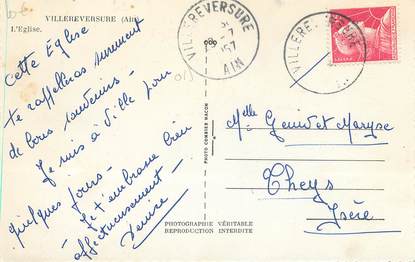 VILLEREVERSURE (Ain)
L'Eglise.
Cette Eglise
te rappellera surement
de bons souvenirs.
Je suis à Ville pour
quelques jours.
Je t'embrasse bien
affectueusement
Denise
VILLEREVERSURE
AIN
VILLEREVERSURE
PHOTO COMBIER MACON
Melle
Theys
Isère
PHOTOGRAPHIE VÉRITABLE
REPRODUCTION INTERDITE